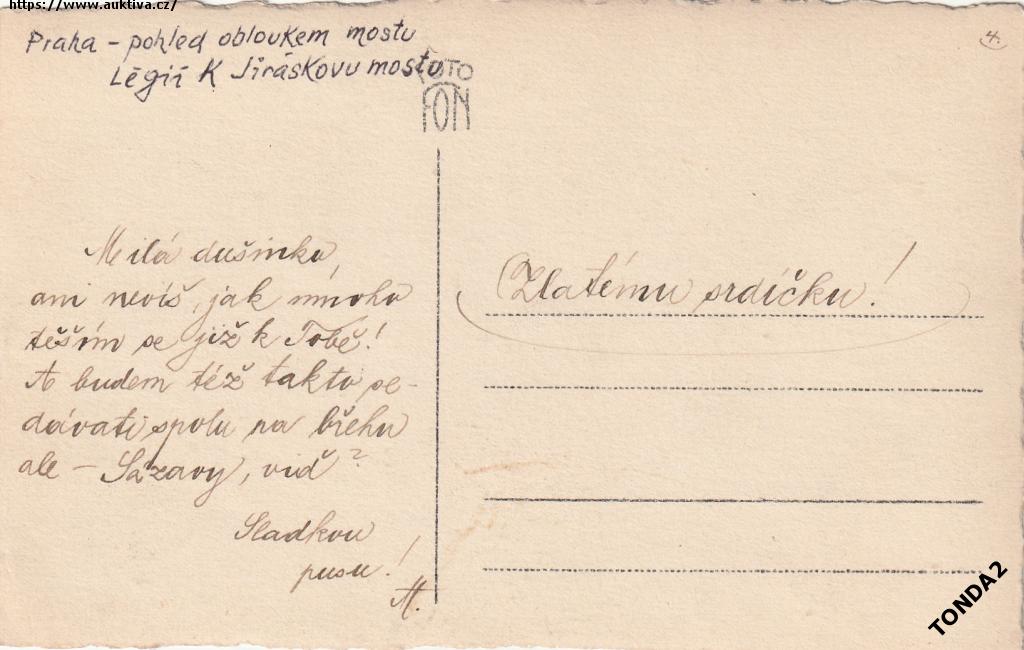 https://www.auktiva.cz/
Praha - pohled obloukem mostu
Légií K Jiráskovu mostu
4.
FOTO
FON
Milá dušinko,
ani nevíš, jak mnoho
těším se již k Tobě!
A budem též takto se-
dávati spolu na břehu
ale - Sázavy, viď?
Sladkou
pusu!
M.
Zlatému srdíčku!
TONDA2